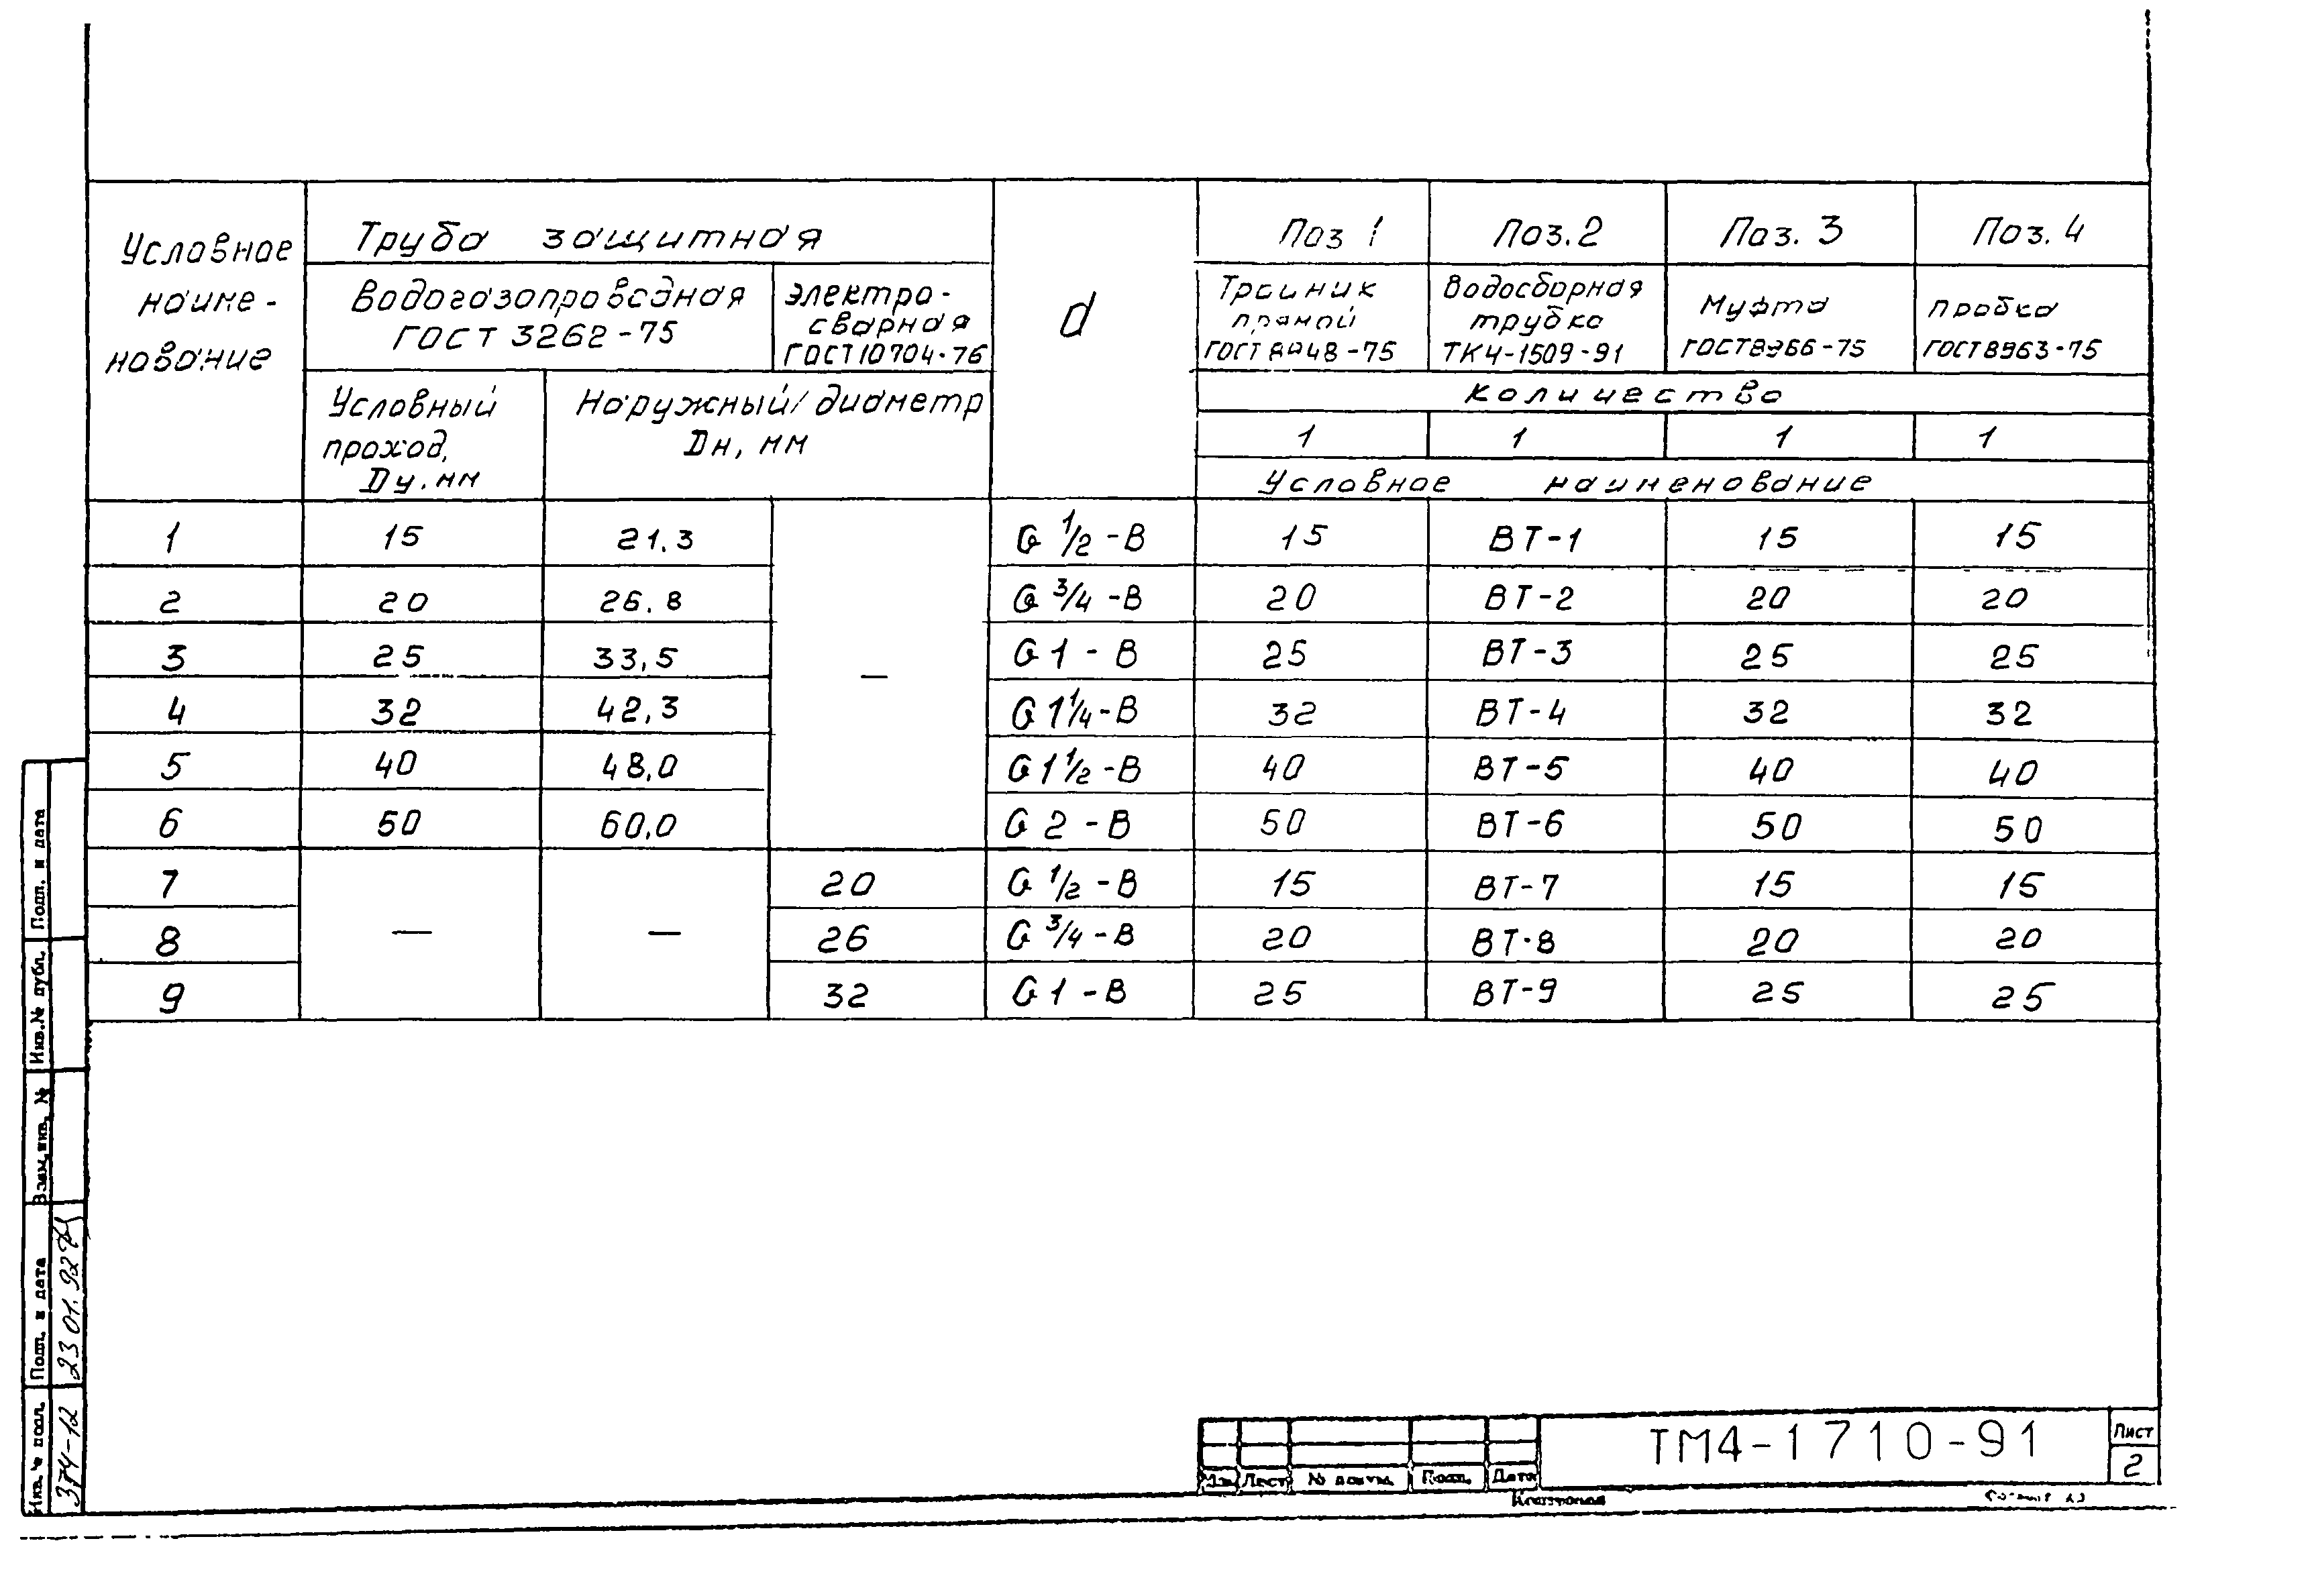 Условное
наиме-
нование
Труба защитная
Водогазопроводная
ГОСТ 3262-75
электро-
сварная
ГОСТ 10704-76
Условный
проход,
Dу, мм
Наружный диаметр
Dн, мм
d
Поз 1
Поз.2
Поз. 3
Поз. 4
Тройник
прямой
ГОСТ 8948-75
Водосборная
трубка
ТК4-1509-91
Муфта
ГОСТ8966-75
Пробка
ГОСТ8963-75
Количество
1 1 1 1
Условное наименование
1 15 21,3 G 1/2-В 15 ВТ-1 15 15
2 20 26,8 G 3/4-В 20 ВТ-2 20 20
3 25 33,5 — G 1-В 25 ВТ-3 25 25
4 32 42,3 G 1 1/4-В 32 ВТ-4 32 32
5 40 48,0 G 1 1/2-В 40 ВТ-5 40 40
6 50 60,0 G 2-В 50 ВТ-6 50 50
7 20 G 1/2-В 15 ВТ-7 15 15
8 — — 26 G 3/4-В 20 ВТ-8 20 20
9 32 G 1-В 25 ВТ-9 25 25
Подп. и дата
Инв.№ дубл.
Взам.инв. №
Подп. и дата
23 01.92
Инв. № подл.
ТМ4-1710-91
Лист
2
Лист № докум. Подп. Дата
Копировал